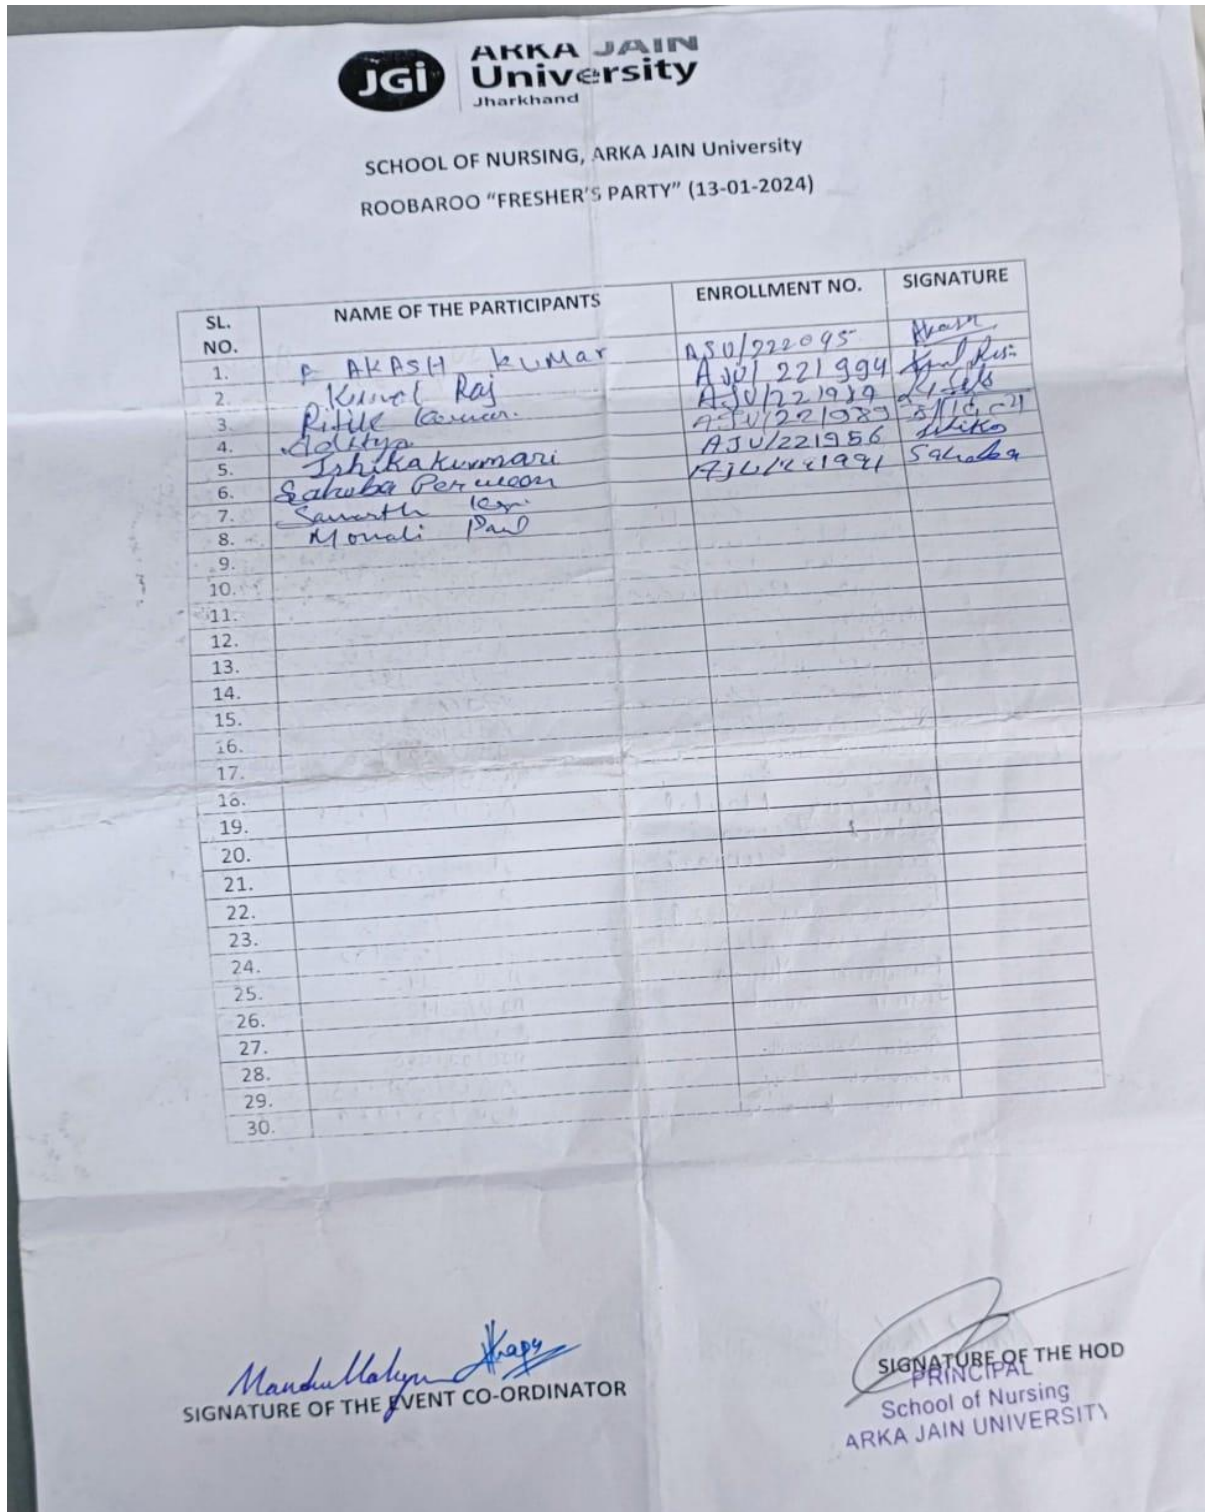 JGi
ARKA JAIN
University
Jharkhand
SCHOOL OF NURSING, ARKA JAIN University
ROOBAROO “FRESHER’S PARTY” (13-01-2024)
SL. NO. NAME OF THE PARTICIPANTS ENROLLMENT NO. SIGNATURE
1. AKASH KUMAR AJU/222095 Akash
2. Kunal Raj AJU/221994
3. Ritik Kumar AJU/221989
4. Aditya AJU/221989
5. Ishika kummari AJU/221956 Ishika
6. Saheba Perween Saheba
7. Samarth
8. Mouali Paul
9.
10.
11.
12.
13.
14.
15.
16.
17.
18.
19.
20.
21.
22.
23.
24.
25.
26.
27.
28.
29.
30.
SIGNATURE OF THE EVENT CO-ORDINATOR
SIGNATURE OF THE HOD
PRINCIPAL
School of Nursing
ARKA JAIN UNIVERSITY